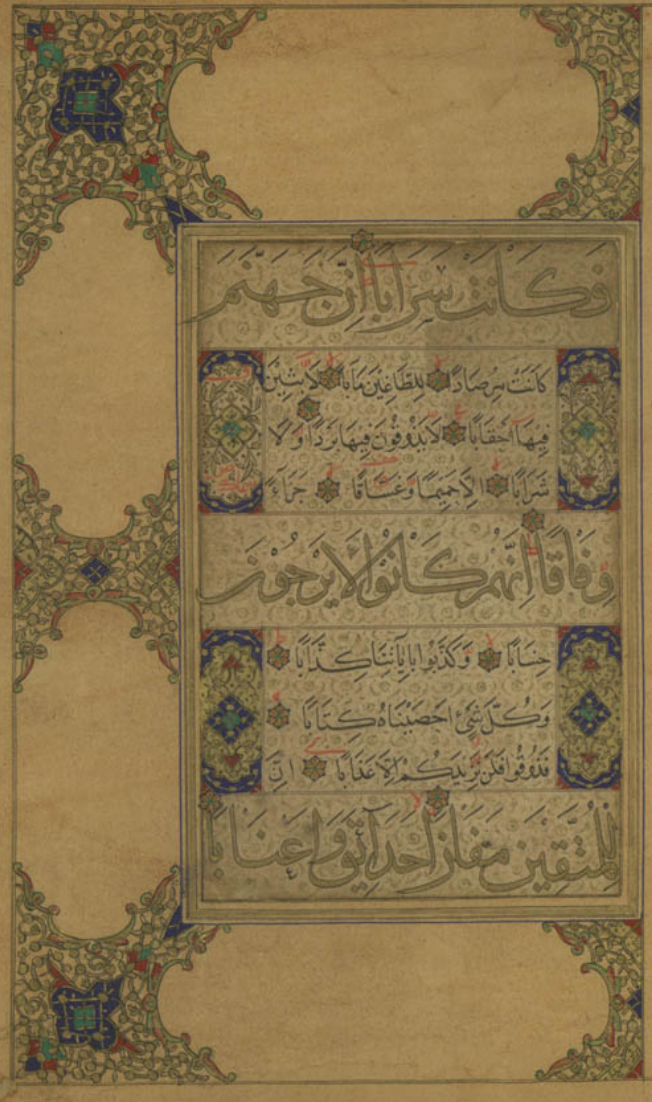 فَكَانَتْ سَرَابًا إِنَّ جَهَنَّمَ
كَانَتْ مِرْصَادًا لِلطَّاغِينَ مَآبًا لَابِثِينَ
فِيهَا أَحْقَابًا لَا يَذُوقُونَ فِيهَا بَرْدًا وَلَا
شَرَابًا إِلَّا حَمِيمًا وَغَسَّاقًا جَزَاءً
وِفَاقًا إِنَّهُمْ كَانُوا لَا يَرْجُونَ
حِسَابًا وَكَذَّبُوا بِآيَاتِنَا كِذَّابًا
وَكُلَّ شَيْءٍ أَحْصَيْنَاهُ كِتَابًا
فَذُوقُوا فَلَنْ نَزِيدَكُمْ إِلَّا عَذَابًا إِنَّ
لِلْمُتَّقِينَ مَفَازًا حَدَائِقَ وَأَعْنَابًا